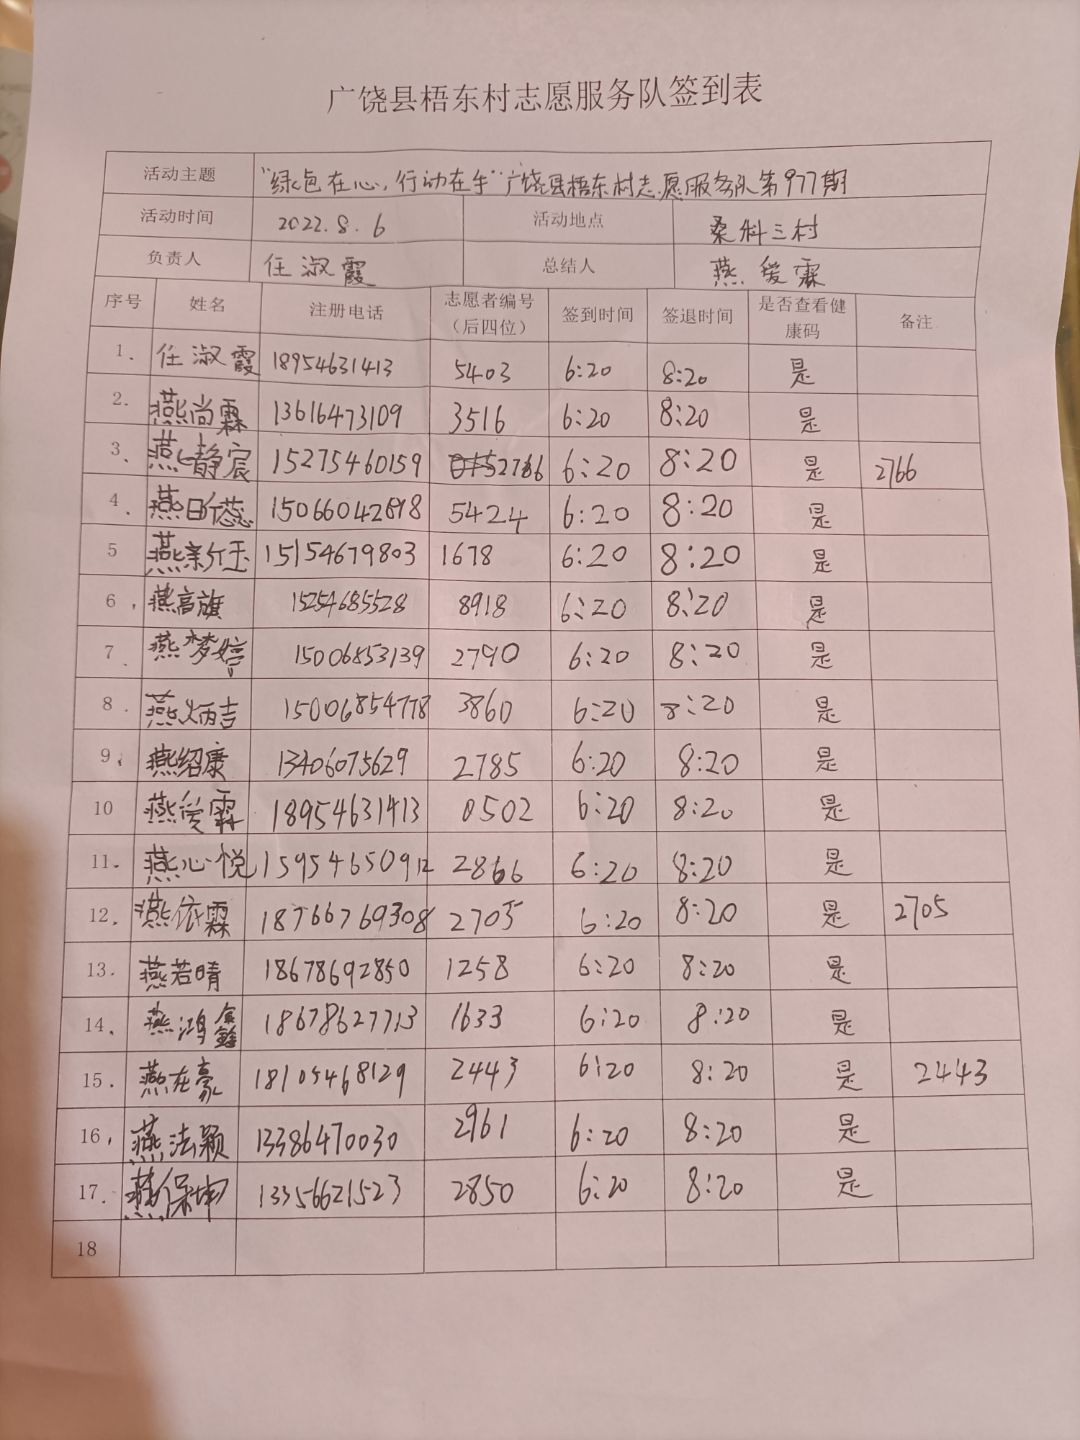 广饶县梧东村志愿服务队签到表
活动主题 "绿色在心,行动在手"广饶县梧东村志愿服务队第977期
活动时间 2022.8.6 活动地点 桑科三村
负责人 任淑霞 总结人 燕爱霖
序号 姓名 注册电话 志愿者编号(后四位) 签到时间 签退时间 是否查看健康码 备注
1. 任淑霞 18954631413 5403 6:20 8:20 是
2. 燕尚霖 13616473109 3516 6:20 8:20 是
3. 燕静宸 15275460159 2766 6:20 8:20 是 2766
4. 燕 5424 6:20 8:20 是
5 燕新钰 15154679803 1678 6:20 8:20 是
6. 燕高旗 15254685528 8918 6:20 8:20 是
7. 燕梦婷 15006853139 2790 6:20 8:20 是
8. 燕炳吉 15006854778 3860 6:20 8:20 是
9. 燕绍康 13406075629 2785 6:20 8:20 是
10 燕爱霖 18954631413 0502 6:20 8:20 是
11. 燕心悦 15954650912 2866 6:20 8:20 是
12. 燕依霖 18766769308 2705 6:20 8:20 是 2705
13. 燕若晴 18678692850 1258 6:20 8:20 是
14. 燕鸿鑫 18678627713 1633 6:20 8:20 是
15. 燕在豪 18105468129 2443 6:20 8:20 是 2443
16. 燕法颖 13386470030 2961 6:20 8:20 是
17. 燕保坤 13356621523 2850 6:20 8:20 是
18